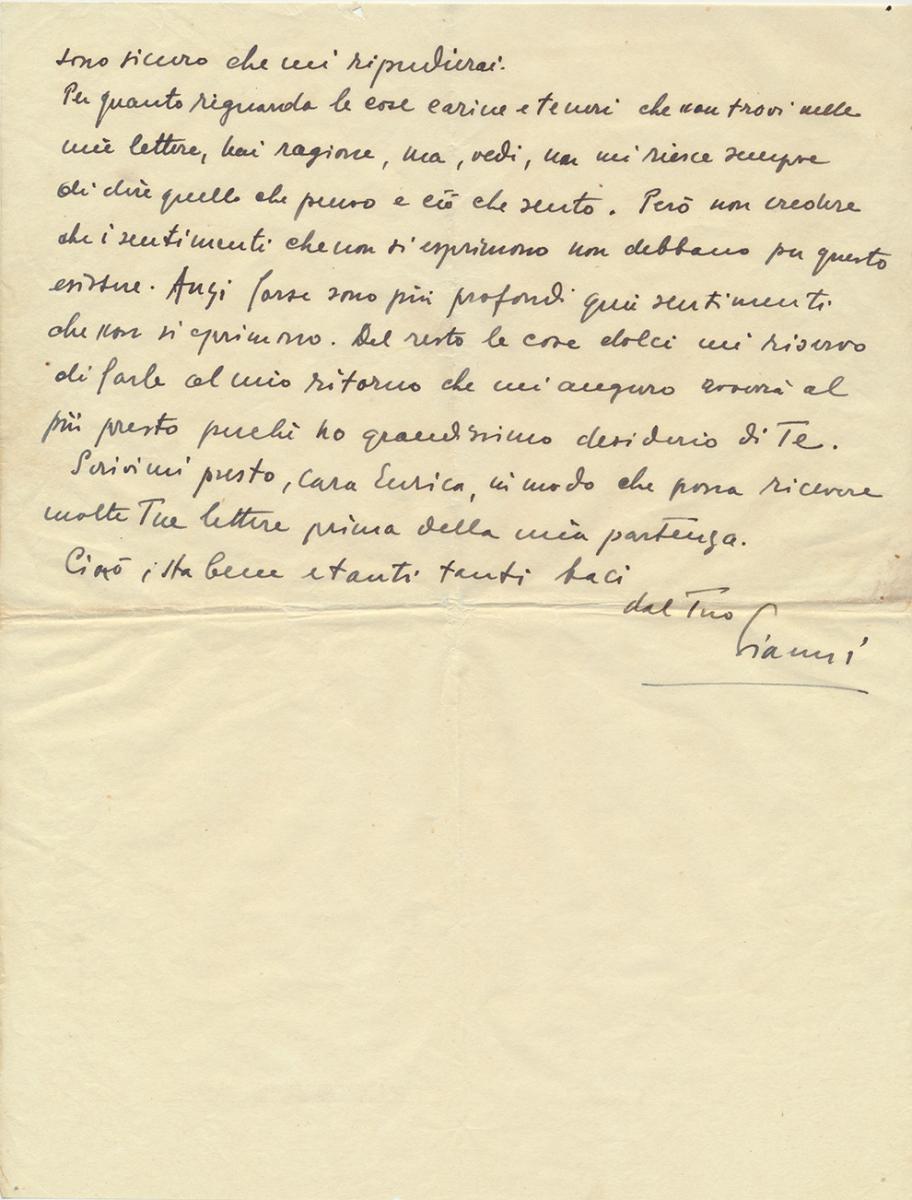 sono sicuro che mi ripudierai.
Per quanto riguarda le cose carine e teneri che non trovi nelle
mie lettere, hai ragione, ma, vedi, non mi riesce sempre
di dire quello che penso e ciò che sento. Però non credere
che i sentimenti che non si esprimono non debbano per questo
esistere. Anzi forse sono più profondi quei sentimenti
che non si esprimono. Del resto le cose dolci mi riservo
di farle al mio ritorno che mi auguro avverrà al
più presto perchè ho grandissimo desiderio di Te.
Scrivimi presto, cara Enrica, in modo che possa ricevere
molte Tue lettere prima della mia partenza.
Ciao, sta bene e tanti tanti baci
dal Tuo
Gianni